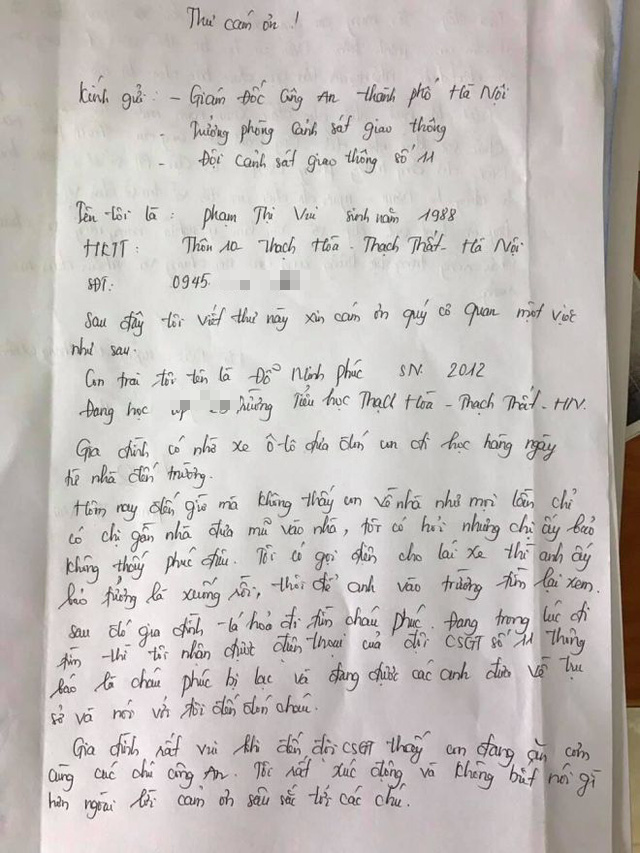 Thư cám ơn !
Kính gửi : - Giám Đốc Công An thành phố Hà Nội
- Trưởng phòng cảnh sát giao thông
- Đội cảnh sát giao thông số 11
Tên tôi là : phạm Thị Vui sinh năm 1988
HKTT : Thôn 10 - Thạch Hoà - Thạch Thất - Hà Nội
SĐT: 0945.
Sau đây tôi viết thư này xin cám ơn quý cơ quan một việc
như sau.
Con trai tôi tên là Đỗ Minh phúc SN. 2012
Đang học trường Tiểu học Thạch Hoà - Thạch Thất - HN.
Gia đình có nhờ xe ô-tô đưa đón con đi học hàng ngày
từ nhà đến trường.
Hôm nay đến giờ mà không thấy con về nhà như mọi lần chỉ
có chị gần nhà đưa mũ vào nhà, tôi có hỏi nhưng chị ấy bảo
không thấy phúc đâu. Tôi có gọi điện cho lái xe thì anh ấy
bảo tưởng là xuống rồi, thôi để anh vào trường tìm lại xem.
Sau đó gia đình tá hoả đi tìm cháu phúc. Đang trong lúc đi
tìm thì tôi nhận được điện thoại của đội CSGT số 11 thông
báo là cháu phúc bị lạc và đang được các anh đưa về trụ
sở và nói với tôi đến đón cháu.
Gia đình rất vui khi đến đội CSGT thấy con đang ăn cơm
cùng các chú công An. Tôi rất xúc động và không biết nói gì
hơn ngoài lời cảm ơn sâu sắc tới các chú.